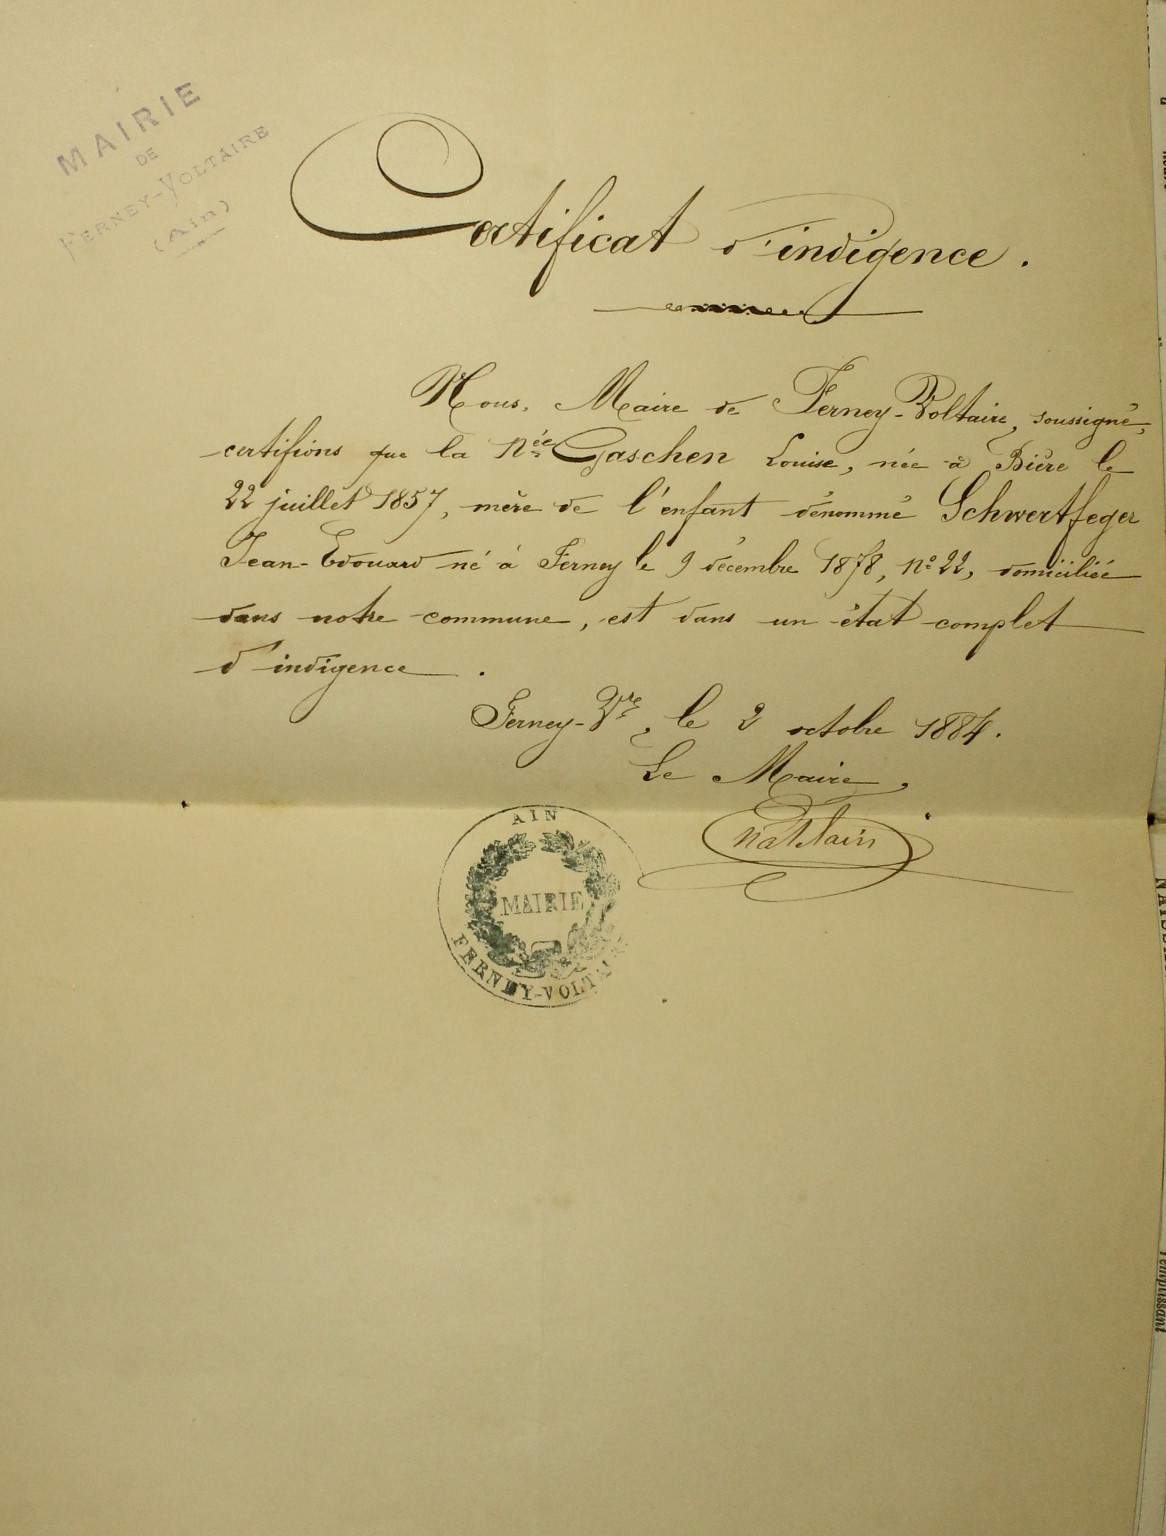 MAIRIE
DE
FERNEY-VOLTAIRE
(Ain)
Certificat d'indigence.
Nous, Maire de Ferney-Voltaire, soussigné,
certifions que la Née Gaschen Louise, née à Bière le
22 juillet 1857, mère de l'enfant dénommé Schwertfeger
Jean-Edouard né à Ferney le 9 décembre 1878, N° 22, domiciliée
dans notre commune, est dans un état complet
d'indigence.
Ferney-Vre, le 2 octobre 1884.
Le Maire,
AIN
MAIRIE
FERNEY-VOLTAIRE